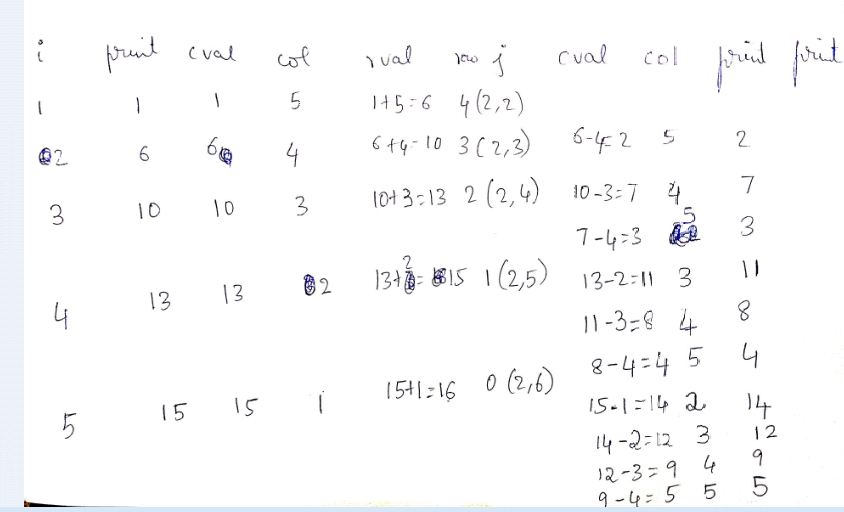 i print cval col rval row j cval col print print
1 1 1 5 1+5=6 4 (2,2)
2 6 6 4 6+4=10 3 (2,3) 6-4=2 5 2
3 10 10 3 10+3=13 2 (2,4) 10-3=7 4 7
7-4=3 5 3
4 13 13 2 13+2=15 1 (2,5) 13-2=11 3 11
11-3=8 4 8
8-4=4 5 4
5 15 15 1 15+1=16 0 (2,6) 15-1=14 2 14
14-2=12 3 12
12-3=9 4 9
9-4=5 5 5